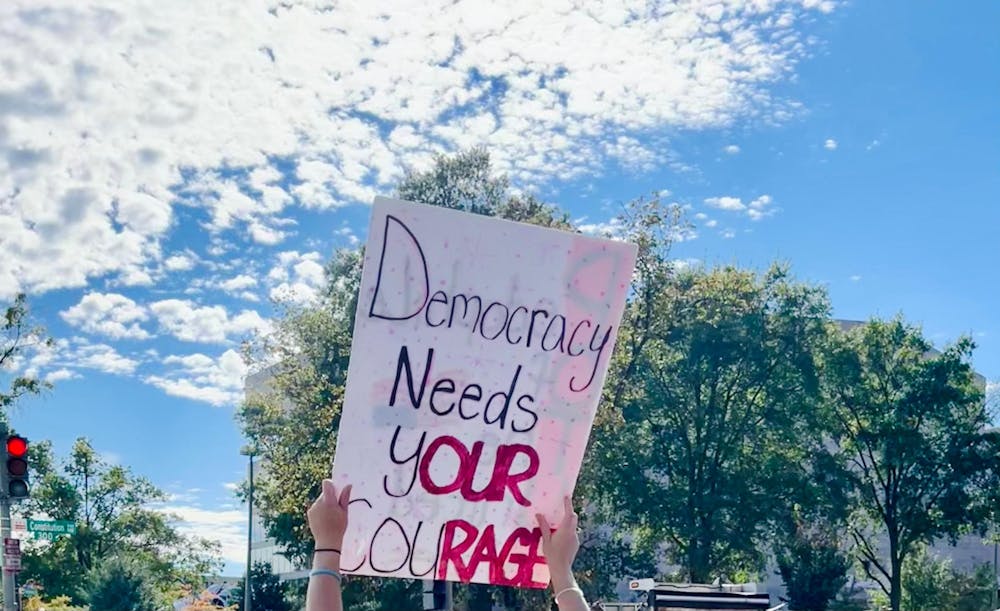 Democracy
Needs
YOUR
COURAGE
Constitution
300